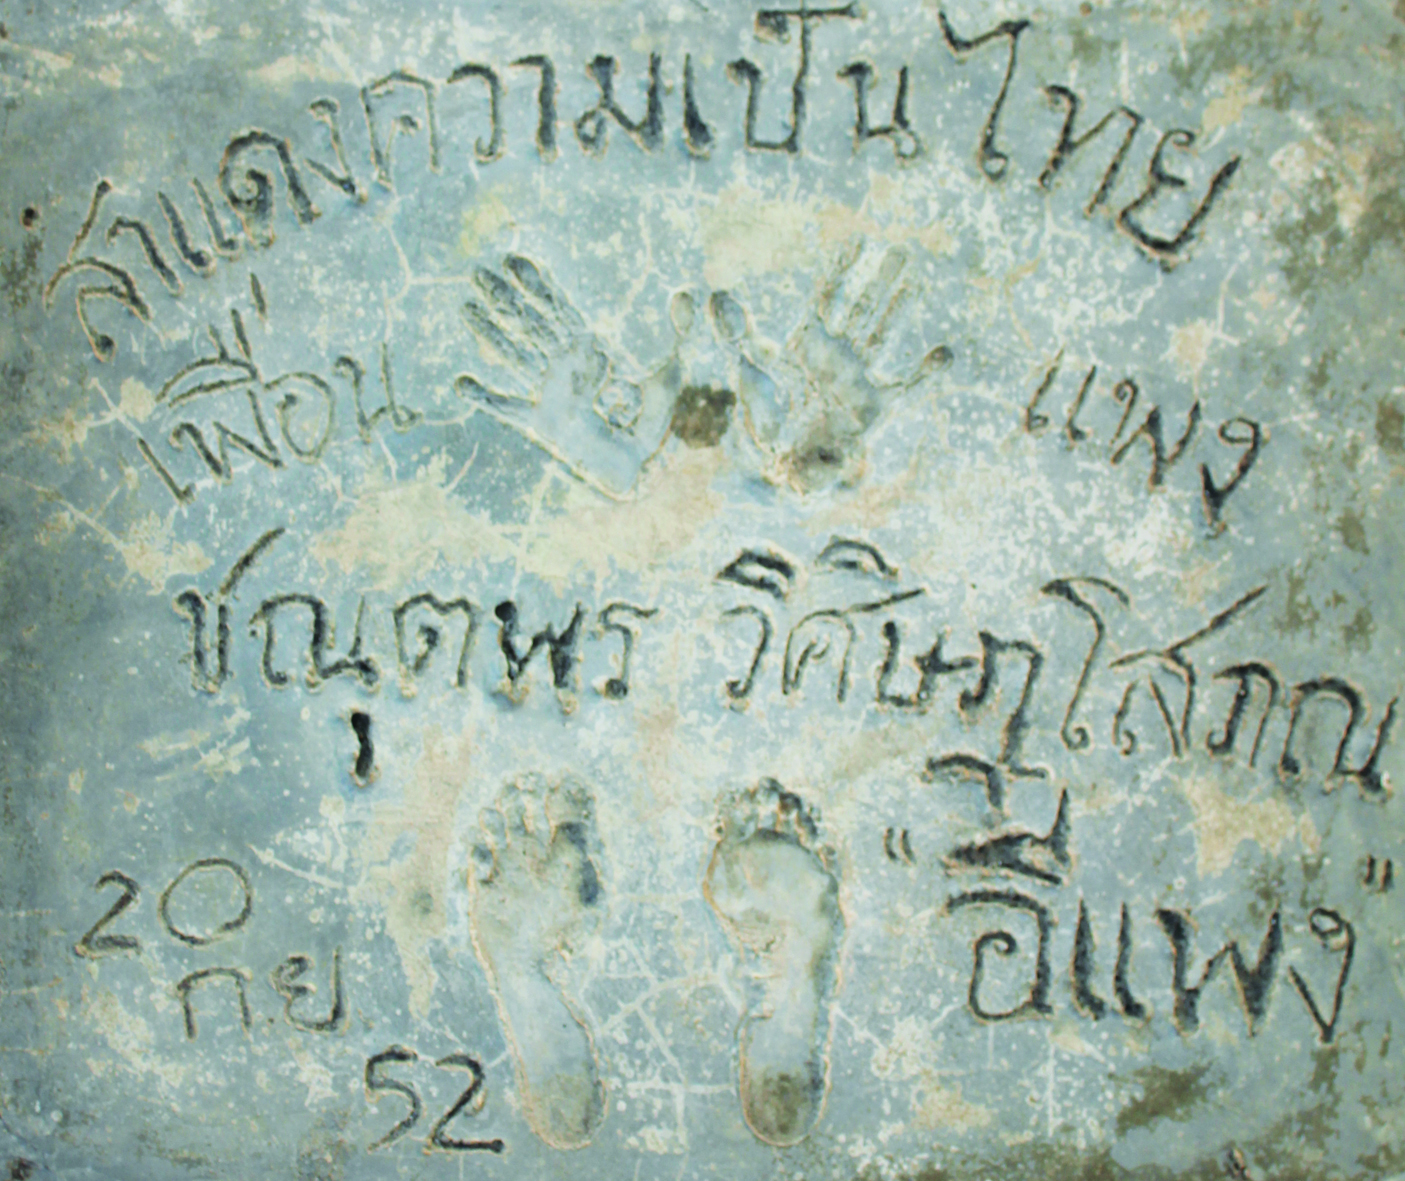 สำแดงความเป็นไทย
เพื่อน แพง
ชณุตพร วิศิษฏโสภณ
"อีแพง"
20
ก.ย
52